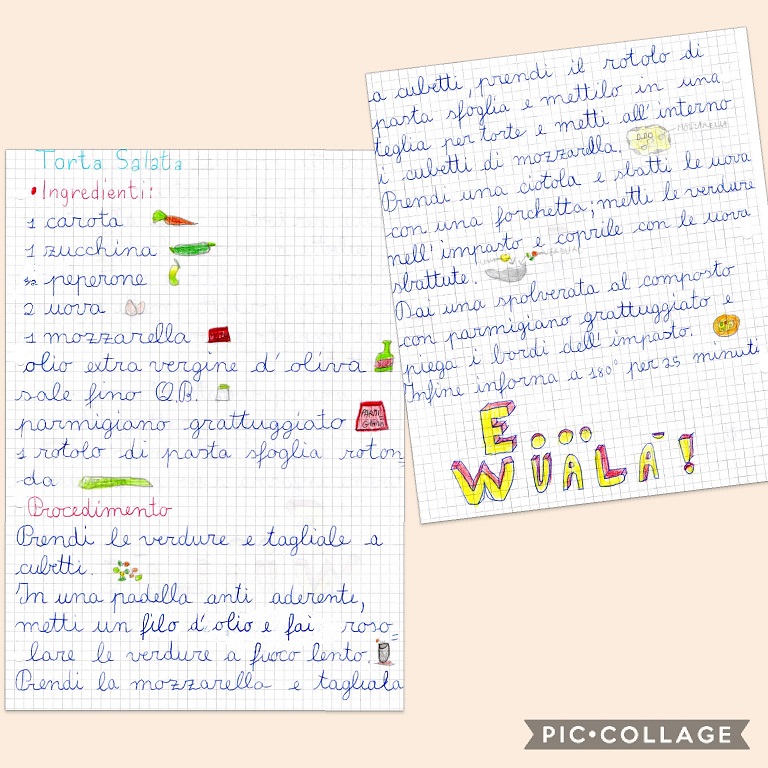 Torta Sallata
•Ingredienti:
1 carota
1 zucchina
½ peperone
2 uova
1 mozzarella
olio extra vergine d'oliva
sale fino Q.B.
parmigiano grattuggiato
1 rotolo di pasta sfoglia roton
da
Procedimento
Prendi le verdure e tagliale a
cubetti.
In una padella anti aderente,
metti un filo d'olio e fai roso=
lare le verdure a fuoco lento.
Prendi la mozzarella e tagliala
a cubetti, prendi il rotolo di
pasta sfoglia e mettilo in una
teglia per torte e metti all'interno
i cubetti di mozzarella.
MOZZARELLA
Prendi una ciotola e sbatti le uova
con una forchetta; metti le verdure
nell'impasto e coprile con le uova
sbattute.
Dai una spolverata al composto
con parmigiano grattuggiato e
piega i bordi dell'impasto.
Infine informa a 180° per 25 minuti
E...
WUALÀ!
PIC•COLLAGE